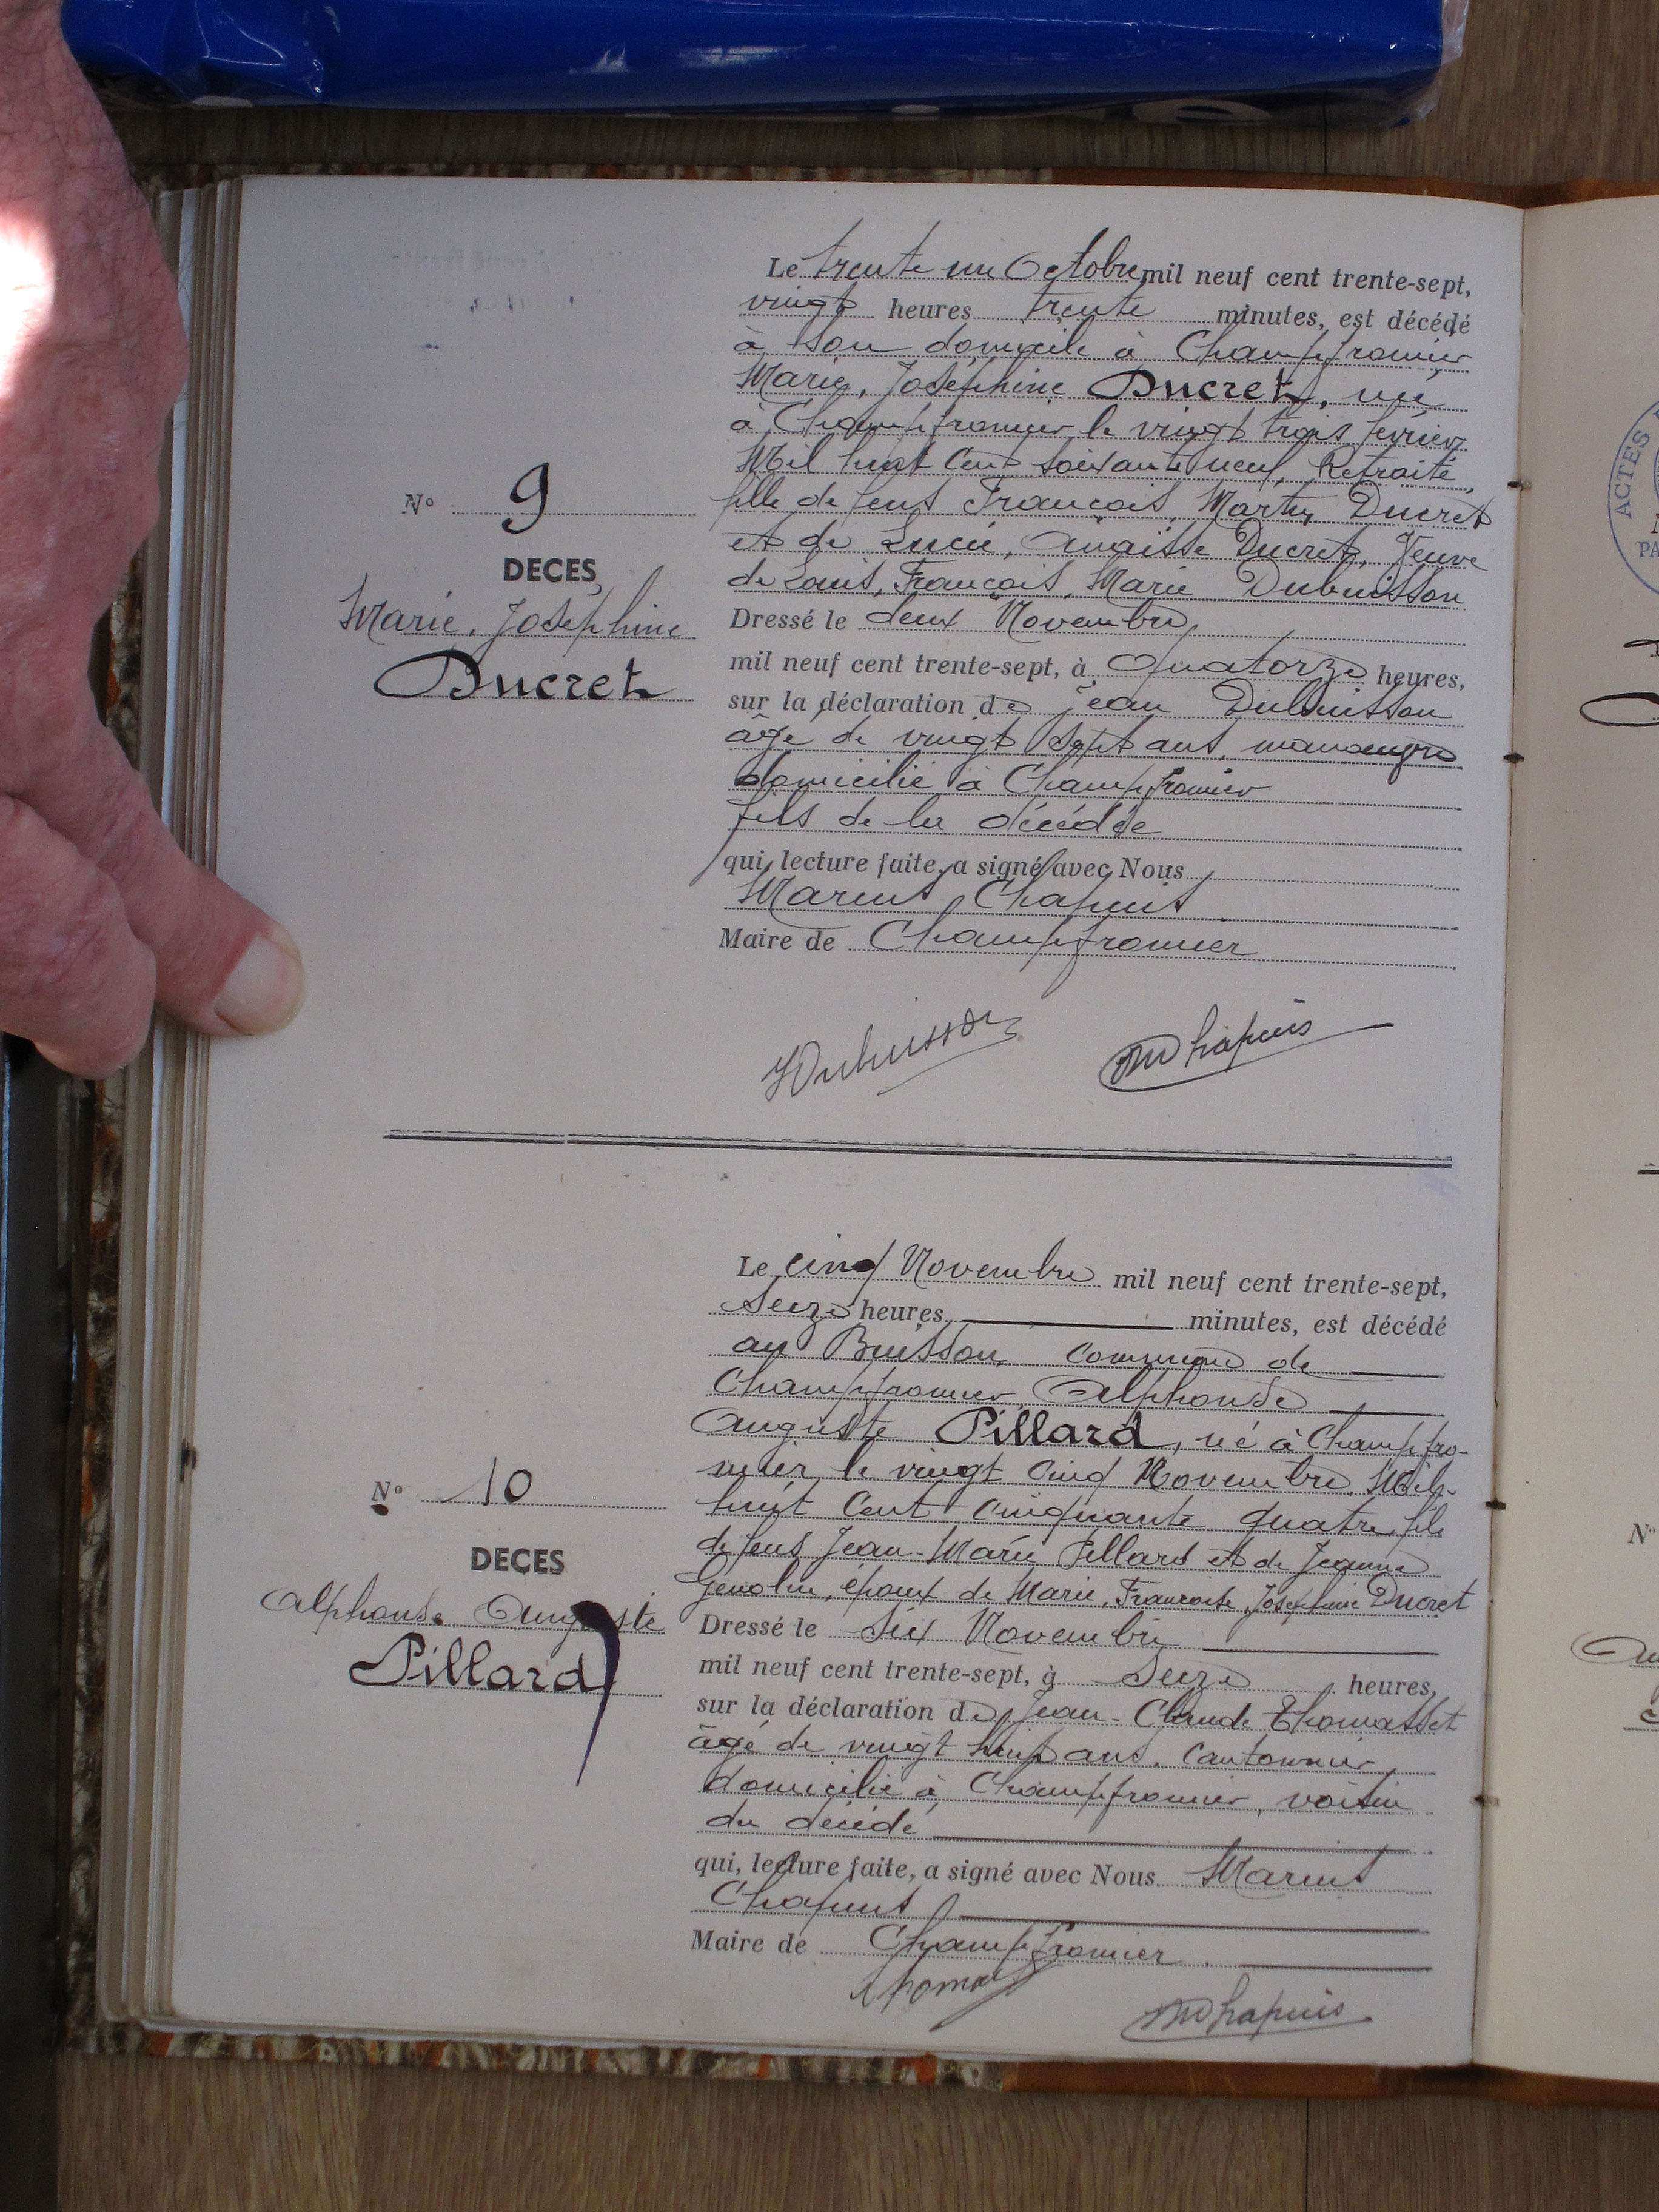 Le trente un Octobre mil neuf cent trente-sept,
vingt heures trente minutes, est décédé
à son domicile à Champfromier
Marie, Joséphine Ducret, née
à Champfromier le vingt trois février
Mil huit cent soixante neuf, Retraité,
fille de feus François, Martin Ducret
et de Lucie, Anaïsse Ducret, Veuve
de Louis, François, Marie Dubuisson
Dressé le deux Novembre,
mil neuf cent trente-sept, à Quatorze heures,
sur la déclaration de Jean Dubuisson
âgé de vingt sept ans, manoeuvre
domicilié à Champfromier
fils de la décédée
qui, lecture faite, a signé avec Nous
Marius Chapuis
Maire de Champfromier
No 9
DECES
Marie, Joséphine
Ducret
JDubuisson
MChapuis
Le cinq Novembre mil neuf cent trente-sept,
Seize heures minutes, est décédé
au Buisson commune de
Champfromier, Alphonse
Auguste Pillard, né à Champfro-
mier, le vingt cinq Novembre, Mil-
huit cent cinquante quatre, fils
de feus Jean-Marie Pillard et de Jeanne
Genolin, époux de Marie, Françoise, Joséphine Ducret
Dressé le Six Novembre
mil neuf cent trente-sept, à Seize heures,
sur la déclaration de Jean-Claude Thomasset
âgé de vingt huit ans, Cantonnier
domicilié à Champfromier, voisin
du décédé
qui, lecture faite, a signé avec Nous Marius
Chapuis
Maire de Champfromier
No 10
DECES
Alphonse Auguste
Pillard
MChapuis
ACTES
PA
No